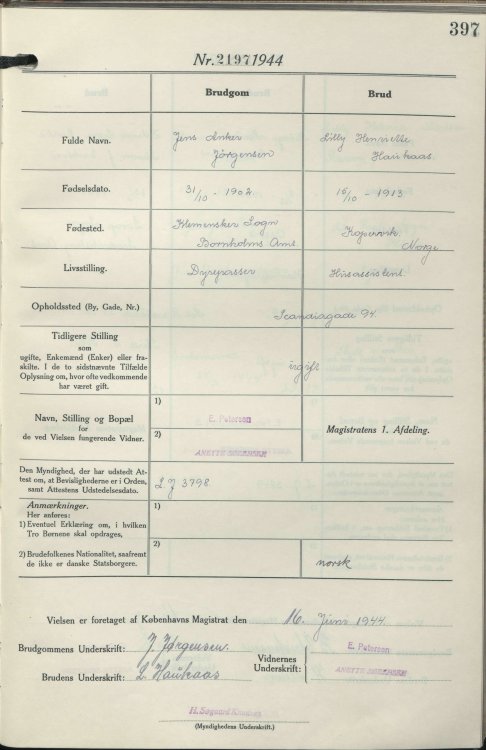 397
Nr. 2197 1944
Brudgom
Brud
Fulde Navn.
Jens Anker
Jörgensen
Lilly Henriette
Haukaas.
Fødselsdato.
31/10 - 1902
15/10 - 1913
Fødested.
Klemensker Sogn
Bornholms Amt
Kopervik.
Norge
Livsstilling.
Dyrepasser
Husassistent
Opholdssted (By, Gade, Nr.)
Scandiagade 94
Tidligere Stilling
som
ugifte, Enkemænd (Enker) eller fra-
skilte. I de to sidstnævnte Tilfælde
Oplysning om, hvor ofte vedkommende
har været gift.
ugift
Navn, Stilling og Bopæl
for
de ved Vielsen fungerende Vidner.
1)
E. Petersen
2)
ANETTE SØRENSEN
Magistratens 1. Afdeling.
Den Myndighed, der har udstedt At-
test om, at Bevislighederne er i Orden,
samt Attestens Udstedelsesdato.
2 J 3798
Anmærkninger.
Her anføres:
1) Eventuel Erklæring om, i hvilken
Tro Børnene skal opdrages,
1)
2) Brudefolkenes Nationalitet, saafremt
de ikke er danske Statsborgere.
2)
norsk
Vielsen er foretaget af Københavns Magistrat den 16. Juni 1944.
Brudgommens Underskrift: J. Jørgensen.
Brudens Underskrift: L. Haukaas
Vidnernes
Underskrift:
E. Petersen
ANETTE SØRENSEN
H. Søgaard
(Myndighedens Underskrift.)